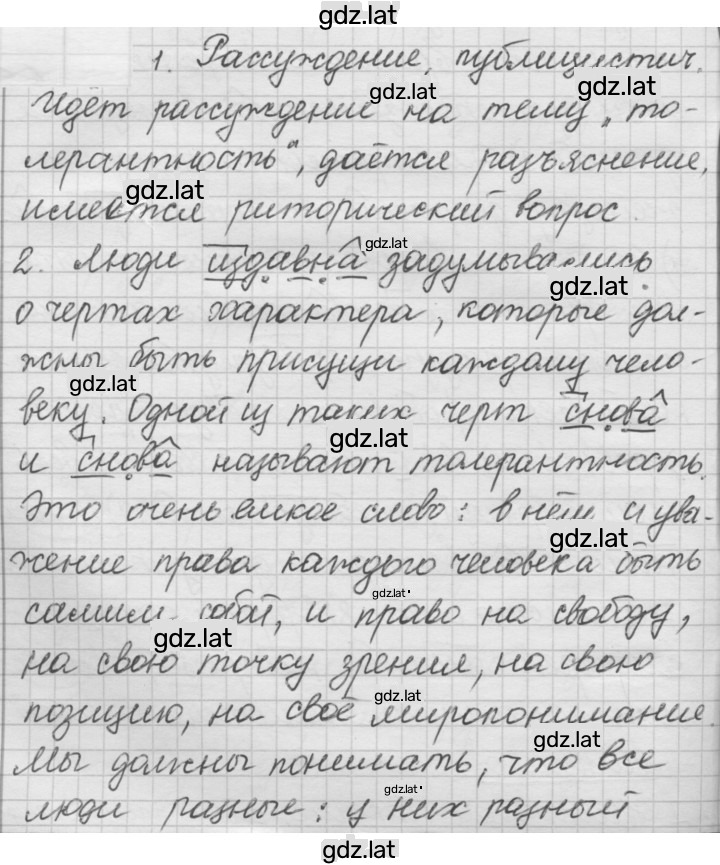 gdz.lat
1. Рассуждение, публицистич.
gdz.lat gdz.lat
Идёт рассуждение на тему „то-
лерантность“, даётся разъяснение,
gdz.lat
имеется риторический вопрос.
gdz.lat
2. Люди издавна задумывались
gdz.lat
о чертах характера, которые дол-
жны быть присущи каждому чело-
gdz.lat
веку. Одной из таких черт снова
gdz.lat
и снова называют толерантность.
Это очень емкое слово: в нём и ува-
gdz.lat
жение права каждого человека быть
gdz.lat
самим собой, и право на свободу,
gdz.lat
на свою точку зрения, на свою
gdz.lat
позицию, на своё миропонимание.
gdz.lat
Мы должны понимать, что все
gdz.lat
люди разные: у них разный
gdz.lat